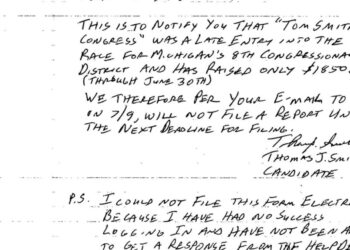 THIS IS TO NOTIFY YOU THAT "TOM SMITH
CONGRESS" WAS A LATE ENTRY INTO THE
RACE FOR MICHIGAN'S 8TH CONGRESSIONA
DISTRICT AND HAS RAISED ONLY $1850.
(THROUGH JUNE 30TH)
WE THEREFORE PER YOUR E-MAIL TO
ON 7/9, WILL NOT FILE A REPORT UN
THE NEXT DEADLINE FOR FILING.
THOMAS J. SMI
CANDIDATE
P.S. I COULD NOT FILE THIS FORM ELECTR
BECAUSE I HAVE HAD NO SUCCESS
LOGGING IN AND HAVE NOT BEEN A
TO GET A RESPONSE FROM THE HELPDE